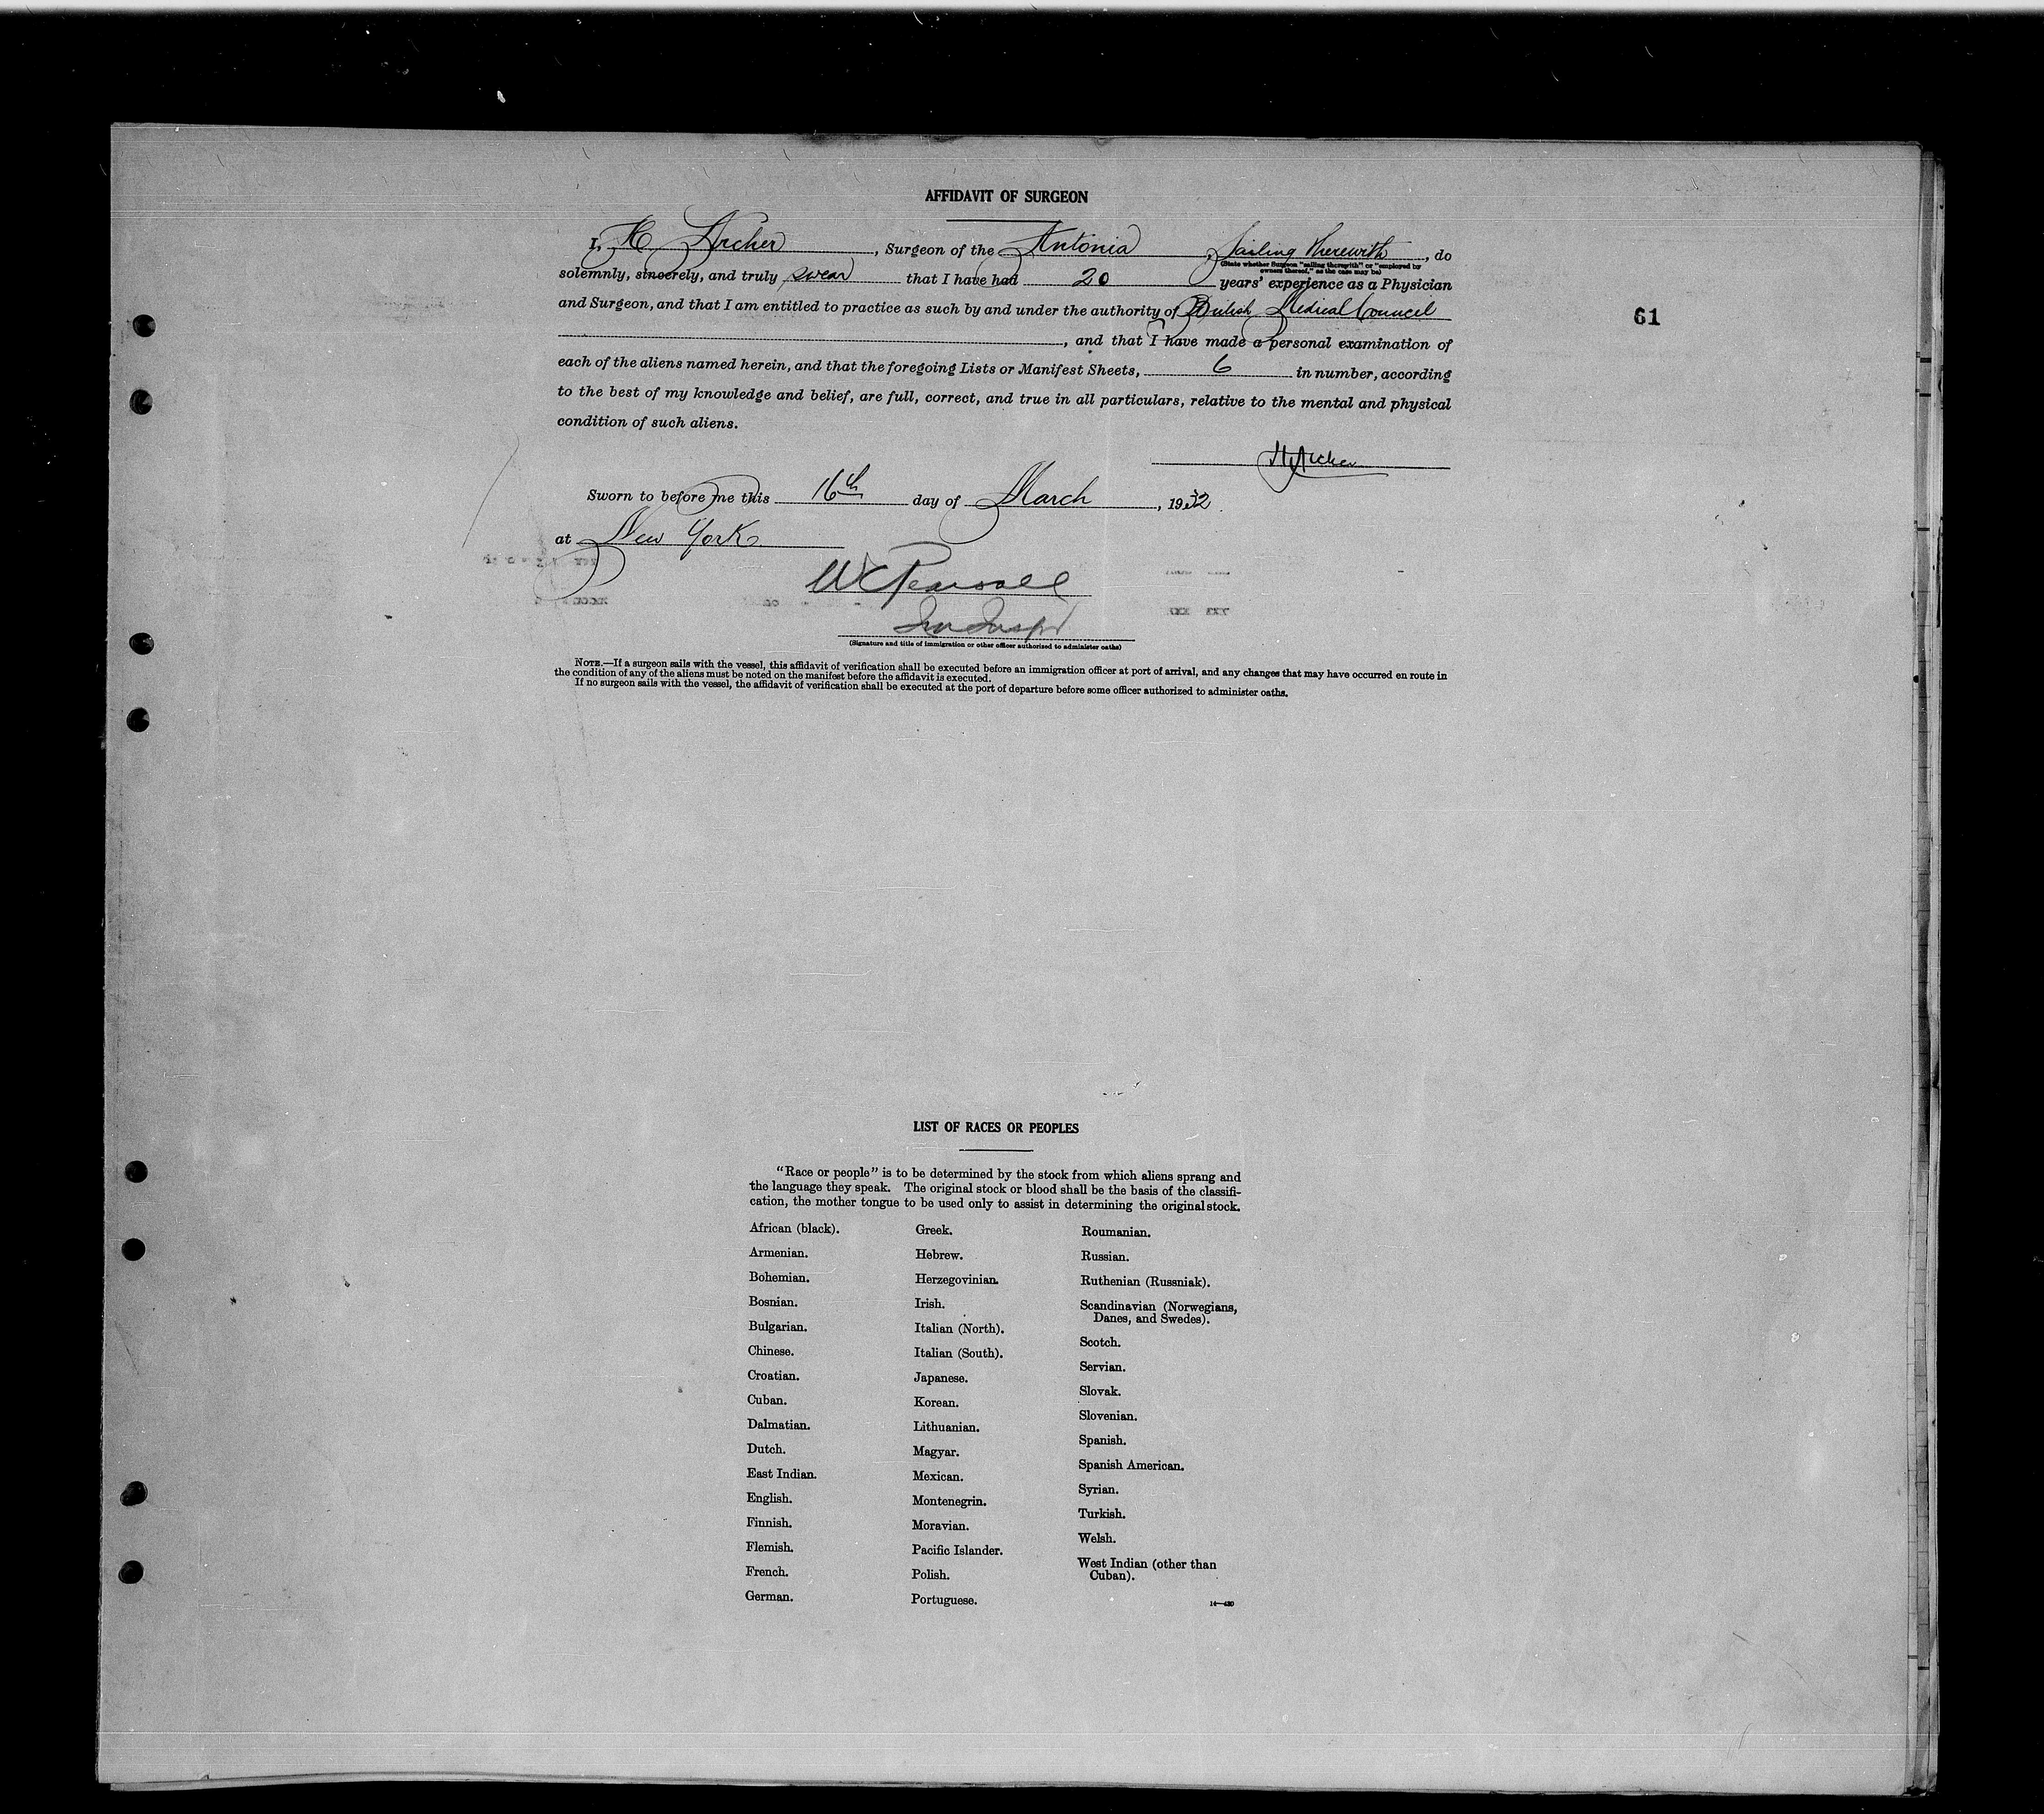 AFFIDAVIT OF SURGEON
I, H Archer, Surgeon of the Antonia, Sailing therewith, do
(State whether Surgeon "sailing therewith" or "employed by
owners thereof," as the case may be)
solemnly, sincerely, and truly swear that I have had 20 years' experience as a Physician
and Surgeon, and that I am entitled to practice as such by and under the authority of British Medical Council
61
, and that I have made a personal examination of
each of the aliens named herein, and that the foregoing Lists or Manifest Sheets, 6 in number, according
to the best of my knowledge and belief, are full, correct, and true in all particulars, relative to the mental and physical
condition of such aliens.
H Archer
Sworn to before me this 16th day of March, 1932.
at New York
(Signature and title of immigration or other officer authorized to administer oaths)
NOTE.—If a surgeon sails with the vessel, this affidavit of verification shall be executed before an immigration officer at port of arrival, and any changes that may have occurred en route in
the condition of any of the aliens must be noted on the manifest before the affidavit is executed.
If no surgeon sails with the vessel, the affidavit of verification shall be executed at the port of departure before some officer authorized to administer oaths.
LIST OF RACES OR PEOPLES
"Race or people" is to be determined by the stock from which aliens sprang and
the language they speak. The original stock or blood shall be the basis of the classifi-
cation, the mother tongue to be used only to assist in determining the original stock.
African (black).
Armenian.
Bohemian.
Bosnian.
Bulgarian.
Chinese.
Croatian.
Cuban.
Dalmatian.
Dutch.
East Indian.
English.
Finnish.
Flemish.
French.
German.
Greek.
Hebrew.
Herzegovinian.
Irish.
Italian (North).
Italian (South).
Japanese.
Korean.
Lithuanian.
Magyar.
Mexican.
Montenegrin.
Moravian.
Pacific Islander.
Polish.
Portuguese.
Roumanian.
Russian.
Ruthenian (Russniak).
Scandinavian (Norwegians,
Danes, and Swedes).
Scotch.
Servian.
Slovak.
Slovenian.
Spanish.
Spanish American.
Syrian.
Turkish.
Welsh.
West Indian (other than
Cuban).